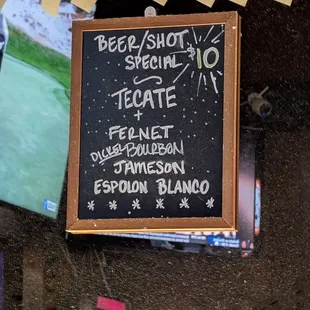 BEER/SHOT
SPECIAL $10
TECATE
+
FERNET
DICKEL BOURBON
JAMESON
ESPOLON BLANCO